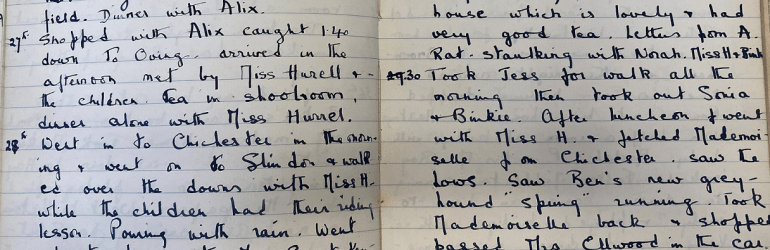 field. Dinner with Alix.
27th Shopped with Alix caught 1.40
down to Oving. arrived in the
afternoon met by Miss Hurell + -
the children. Tea in shoolroom,
dinner alone with Miss Hurrel.
28th Went in to Chichester in the morn-
ing & went on to Slindon & walk
ed over the downs with Miss H-
while the children had their riding
lesson. Pouring with rain. Went
house which is lovely & had
very good tea. Letters from A.
Rat. staulking with Norah. Miss H & Bink
30 Took Jess for walk all the
morning then took out Sonia
& Binkie. After luncheon I went
with Miss H. & fetched Mademoi-
selle from Chichester. saw the
Saw Ben's new grey-
hound "spring" running. Took
Mademoiselle back & shopped
passed Mrs Ellwood in the car